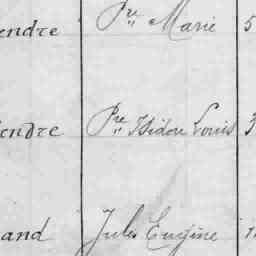 endre Pre Marie 5
endre Pre Isidore Louis 3
and Jules Eugène 1